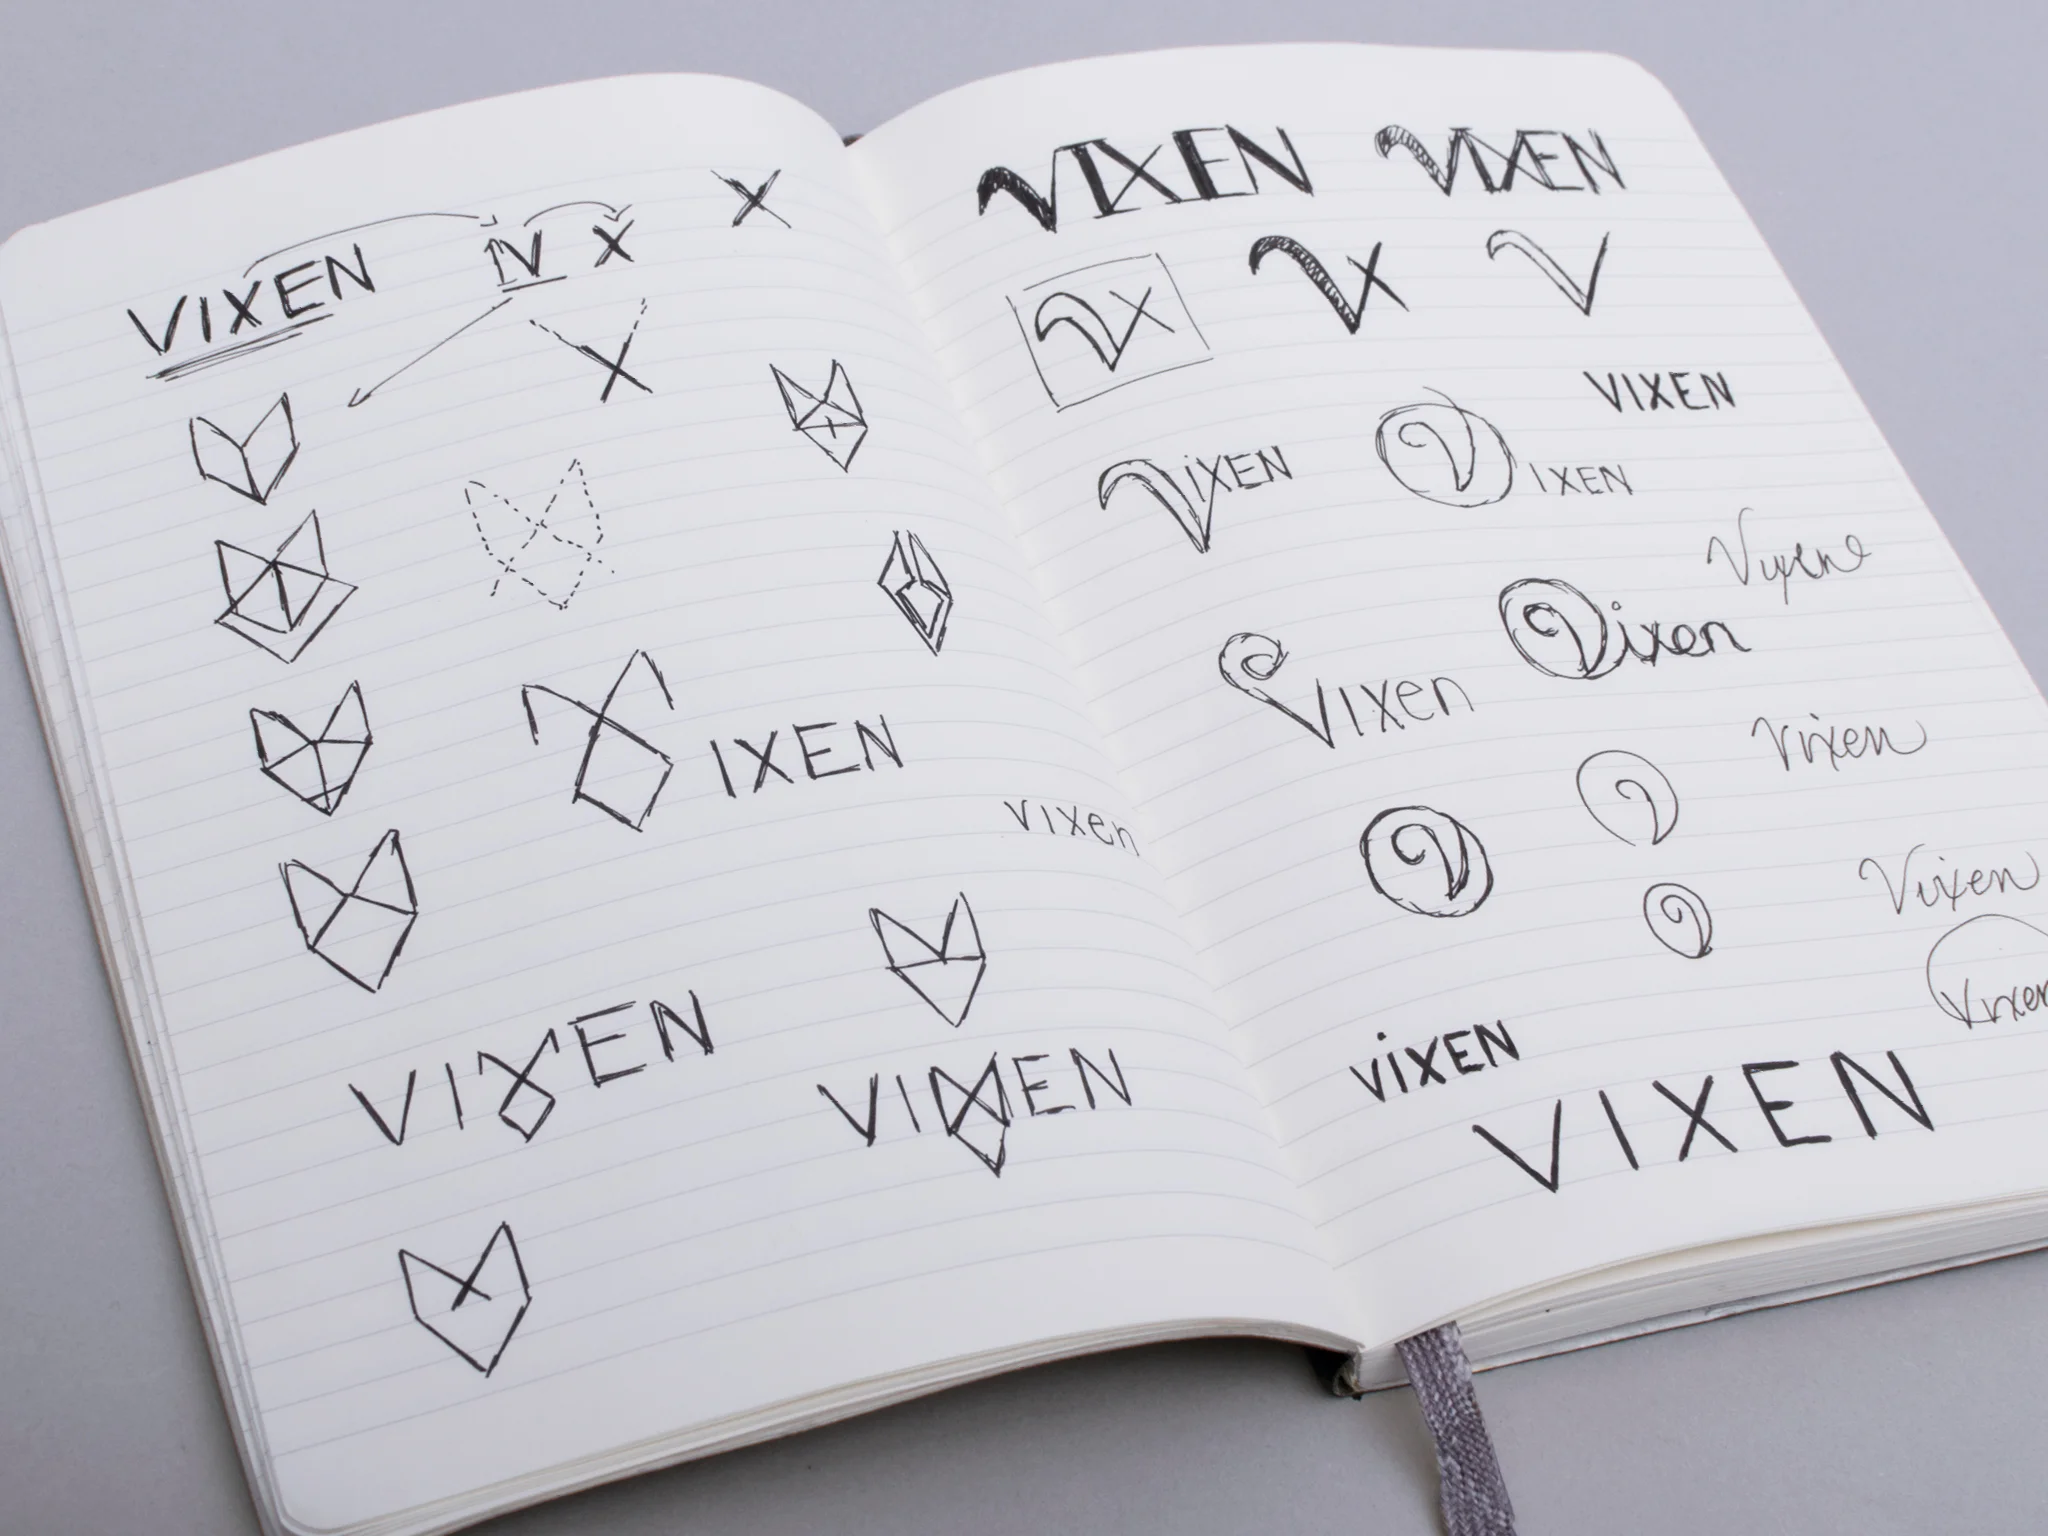 X
VIXEN
IV X
X
IXEN
vixen
VIXEN
VIXEN
VIXEN
VIXEN
VX
VX
V
VIXEN
ViXEN
VIXEN
Vixen
Vixen
Vixen
Vixen
V
V
V
Vixen
Vixen
viXEN
VIXEN